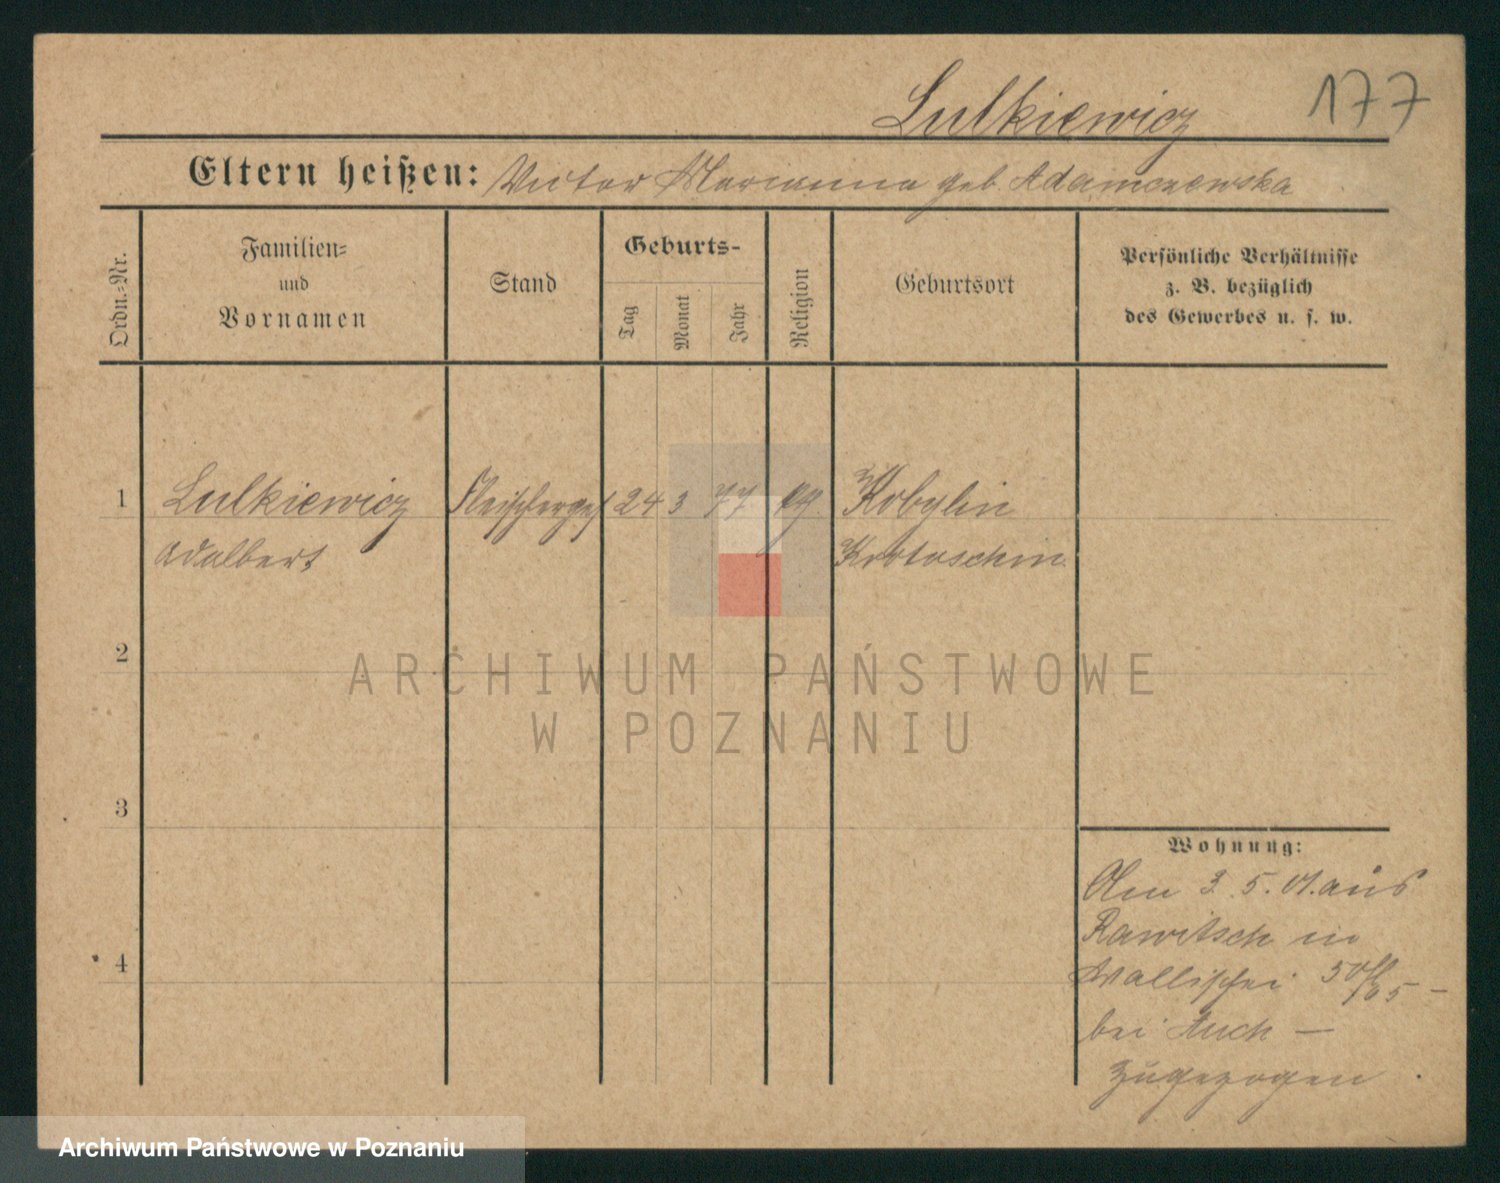 Lulkiewicz
177
Eltern heißen: Victor Marianna geb. Adamczewska
Ordn.-Nr.
Familien-
und
Vornamen
Stand
Geburts-
Tag
Monat
Jahr
Religion
Geburtsort
Persönliche Verhältnisse
z. B. bezüglich
des Gewerbes u. s. w.
1 Lulkiewicz Fleischerges 24 3 77 Kobylin
Adalbert Krotoschin
2
ARCHIWUM PAŃSTWOWE
W POZNANIU
3
Wohnung:
Am 3. 5. 01. aus
Rawitsch in
4
Wallischei
bei
zugezogen
Archiwum Państwowe w Poznaniu